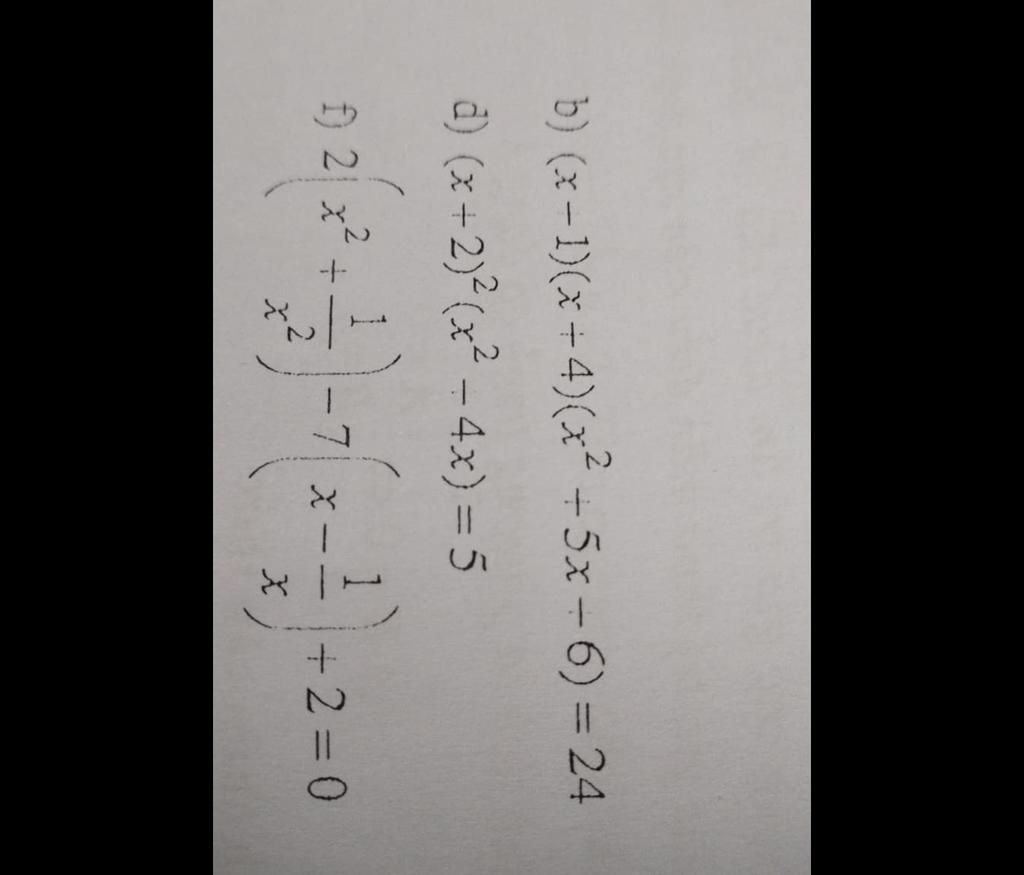 b) (x+1)(x+4)(x²+5x+6)=24
d) (x+2)²(x²+4x)=5
f) 2(x²+1/x²)−7(x−1/x)+2=0